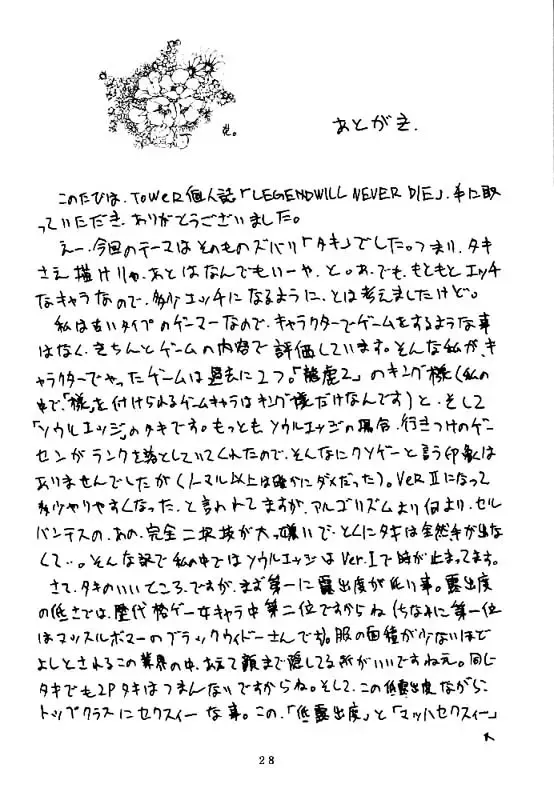 あとがき.
このたびは、TOWER個人誌「LEGEND WILL NEVER DIE」、手に取
っていただき、ありがとうございました。
えー、今回のテーマはそのものズバリ「タキ」でした。つまり、タキ
さえ描けりゃ、あとはなんでもいーや、と。あ、でも、もともとエッチ
なキャラなので、多少エッチになるように、とは考えましたけど。
私は古いタイプのゲーマーなので、キャラクターでゲームをするような事
はなく、きちんとゲームの内容で評価しています。そんな私が、キ
ャラクターでやったゲームは過去に2つ。「龍虎2」のキング様(私の
中で、「様」を付けられるゲームキャラはキング様だけなんです)と、そして
「ソウルエッジ」のタキです。もっとも、ソウルエッジの場合、行きつけのゲー
センがランクを落としていてくれたので、そんなにクソゲーと言う印象は
ありませんでしたが(ノーマル以上は確かにダメだった)。Ver.Ⅱになって
多少やりやすくなった、と言われてますが、アルゴリズムより何より、セル
バンテスの、あの、完全二択技が大っ嫌いで、とくにタキは全然手が出な
くて…。そんな訳で私の中ではソウルエッジはVer.Ⅰで時が止まってます。
さて、タキのいいところ、ですが、まず第一に露出度が低い事。露出度
の低さでは、歴代格ゲー女キャラ中第二位ですからね(ちなみに第一位
はマッスルボマーのブラックウィドーさんです)。服の面積が少ないほど
よしとされるこの業界の中、あえて顔まで隠してる所がいいですねえ。同じ
タキでも2Pタキはつまんないですからね。そして、この低露出度ながら、
トップクラスにセクスィーな事。この、「低露出度」と「マッハセクスィー」
28